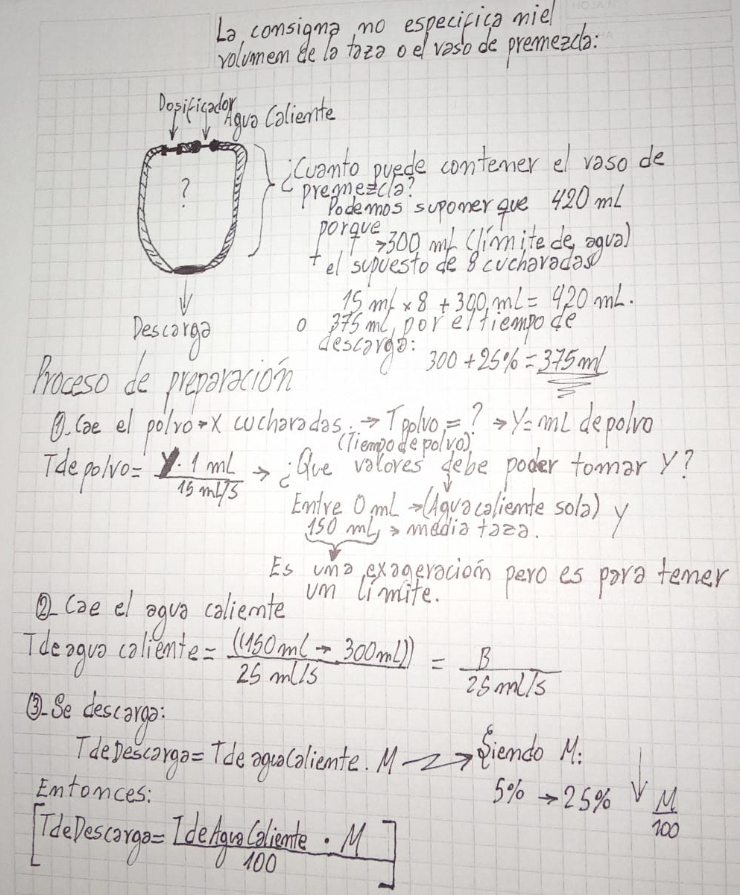 La consigna no especifica ni el
volumen de la taza o el vaso de premezcla:
Dosificador
Agua Caliente
?
Descarga
¿Cuanto puede contener el vaso de
premezcla?
Podemos suponer que 420 mL
porque
→300 mL (límite de agua)
+ el supuesto de 8 cucharadas
15 mL x 8 + 300 mL = 420 mL.
o 375 mL, por el tiempo de
descarga:
300 + 25% = 375 ml
Proceso de preparación
①. Cae el polvo → X cucharadas. → T polvo = ? → Y = mL de polvo
(Tiempo de polvo)
T de polvo = Y · 1 mL / 15 ml/s → ¿Que valores debe poder tomar Y?
Entre 0 mL → (Agua caliente sola) y
150 mL → media taza.
Es una exageración pero es para tener
un límite.
②. Cae el agua caliente
T de agua caliente = ((150 mL → 300 mL)) / 25 ml/s = B / 25 ml/s
③. Se descarga:
T de Descarga = T de agua Caliente . M → Siendo M:
5% → 25% ↓ M / 100
Entonces:
[T de Descarga = T de Agua Caliente · M / 100]